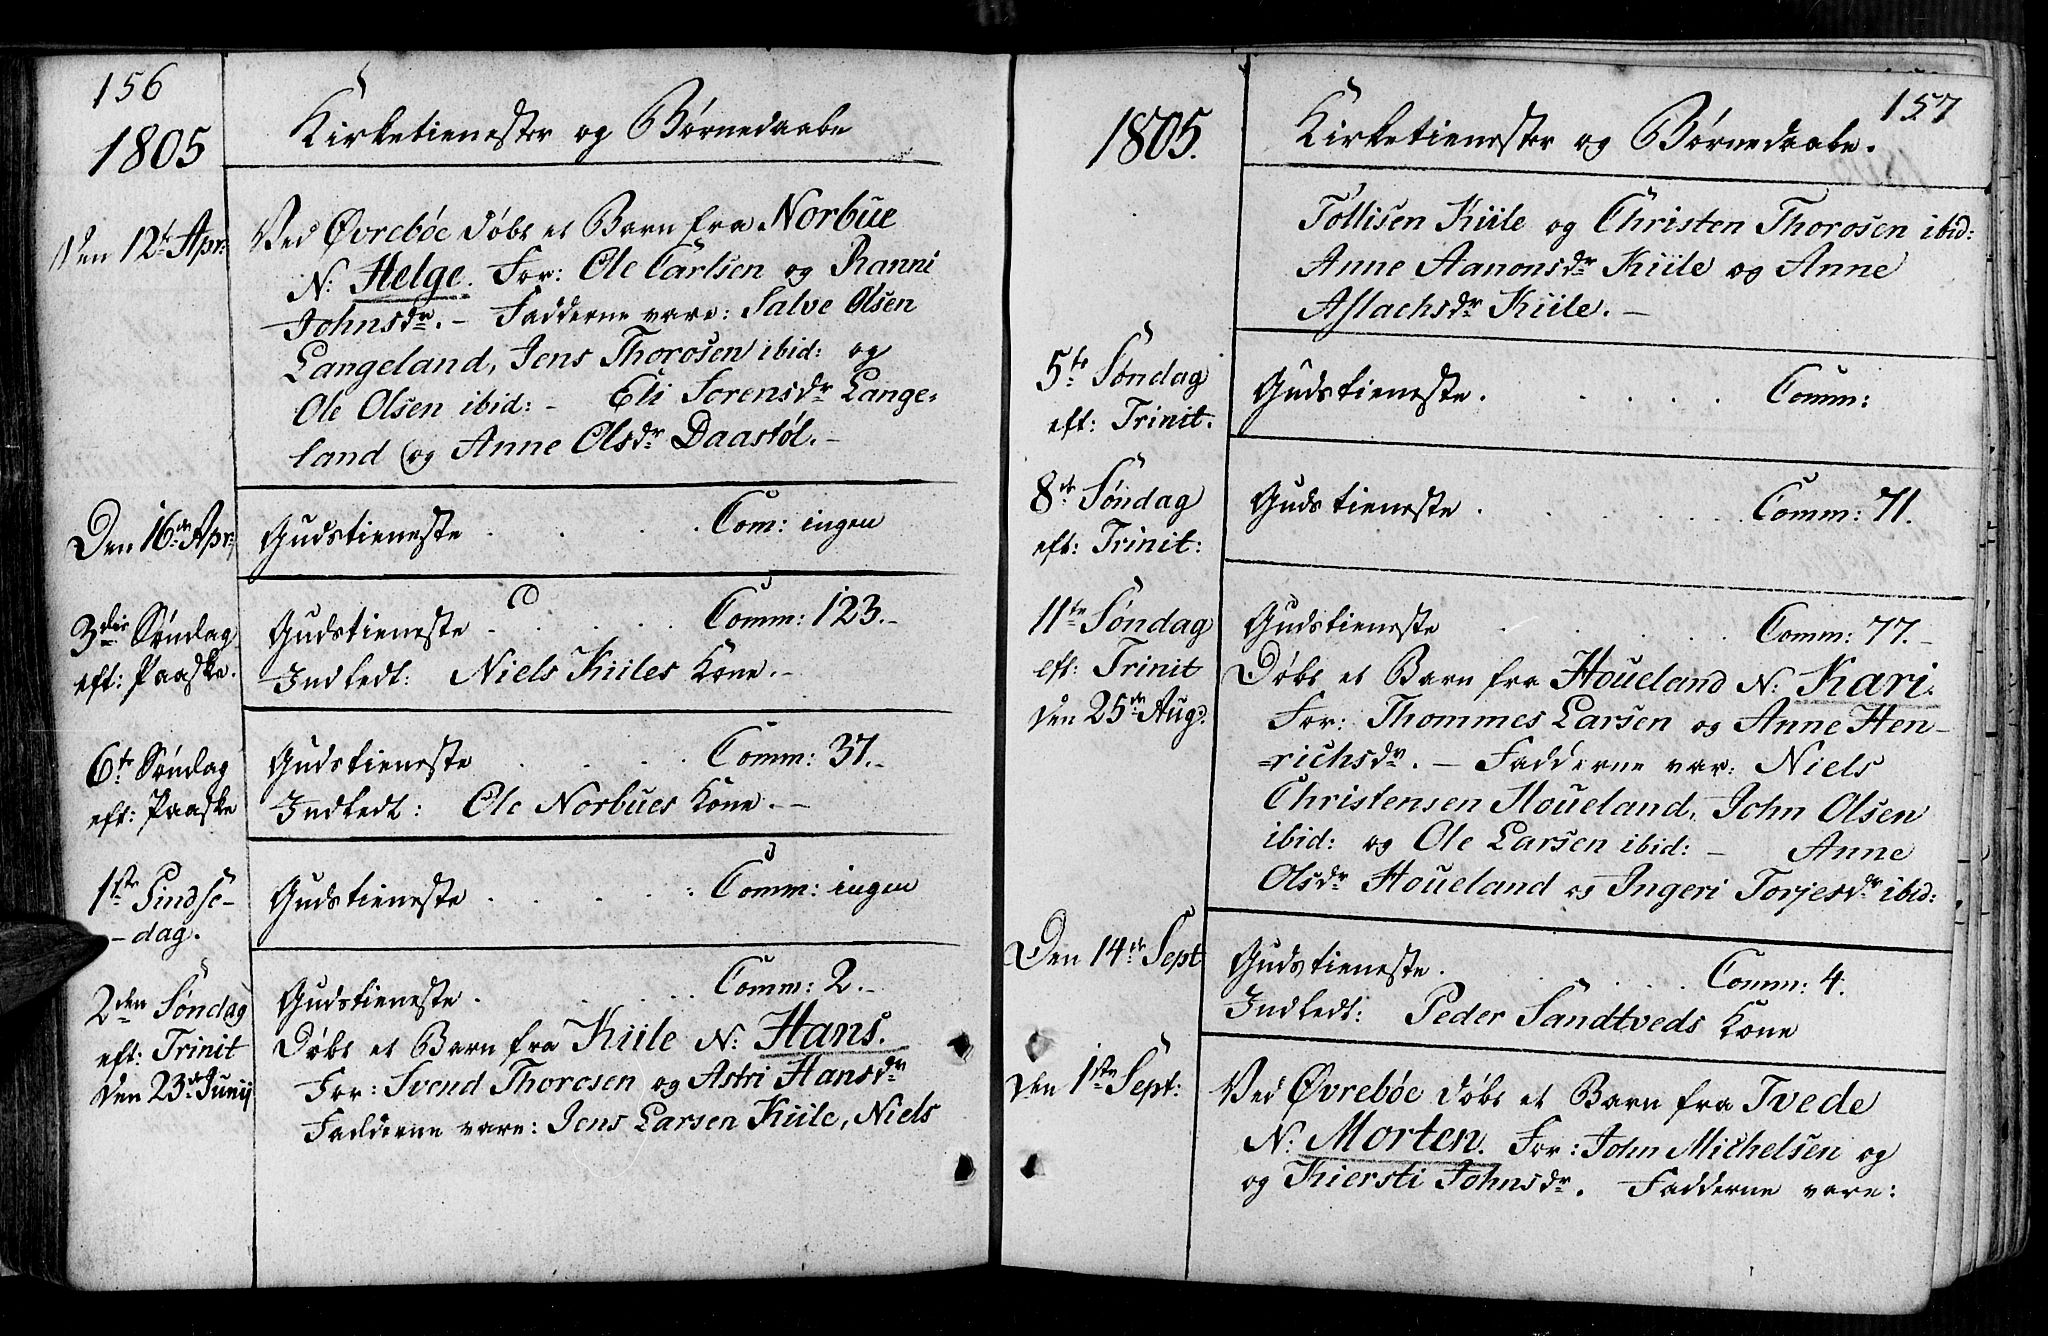 156
1805
Kirketienester og Børnedaabe
Den 12te Apr:
Ved Øvrebøe døbt et Barn fra Norbue
N: Helge. For: Ole Carlsen og Ranni
Johnsdr. – Fadderne vare: Salve Olsen
Langeland, Jens Thorosen ibid: og
Ole Olsen ibid: – Eli Sorensdr Lange=
land og Anne Olsdr Daastøl. –
Den 16de Apr:
Gudstieneste . . . . Com: ingen
3die Søndag
eft: Paaske.
Gudstieneste . . . . Comm: 123. –
Indledt: Niels Kiiles Kone. –
6te Søndag
eft: Paaske
Gudstieneste . . . . Comm: 37. –
Indledt: Ole Norbues Kone. –
1ste Pindse-
-dag.
Gudstieneste . . . . Comm: ingen
2den Søndag
eft: Trinit
Den 23de Junij
Gudstieneste . . . . Comm: 2. –
Døbt et Barn fra Kiile N: Hans.
For: Svend Thorosen og Astri Hansdr
Fadderne vare: Jens Larsen Kiile, Niels
157
1805.
Kirketienester og Børnedaabe.
Tollisen Kiile og Christen Thorosen ibid:
Anne Aanonsdr Kiile og Anne
Aslachsdr Kiile. –
5te Søndag
eft: Trinit.
Gudstieneste . . . . Comm:
8de Søndag
eft: Trinit:
Gudstieneste . . . . Comm: 71.
11te Søndag
eft: Trinit
Den 25de Aug:
Gudstieneste . . . . Comm: 77. –
Døbt et Barn fra Houeland N: Kari.
For: Thommes Larsen og Anne Hen-
=richsdr. – Fadderne var: Niels
Christensen Houeland, John Olsen
ibid: og Ole Larsen ibid: – Anne
Olsdr Houeland og Ingeri Torjesdr ibid:
Den 14de Sept
Gudstieneste . . . . Comm: 4.
Indledt: Peder Sandtveds Kone
Den 1ste Sept:
Ved Øvrebøe døbt et Barn fra Tvede
N: Morten. For: John Michelsen og
og Kiersti Johnsdr. Fadderne vare: